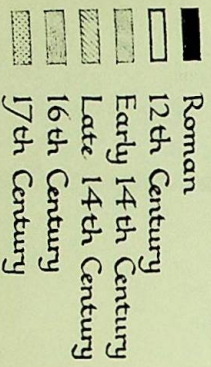 Roman
12th Century
Early 14th Century
Late 14th Century
16th Century
17th Century